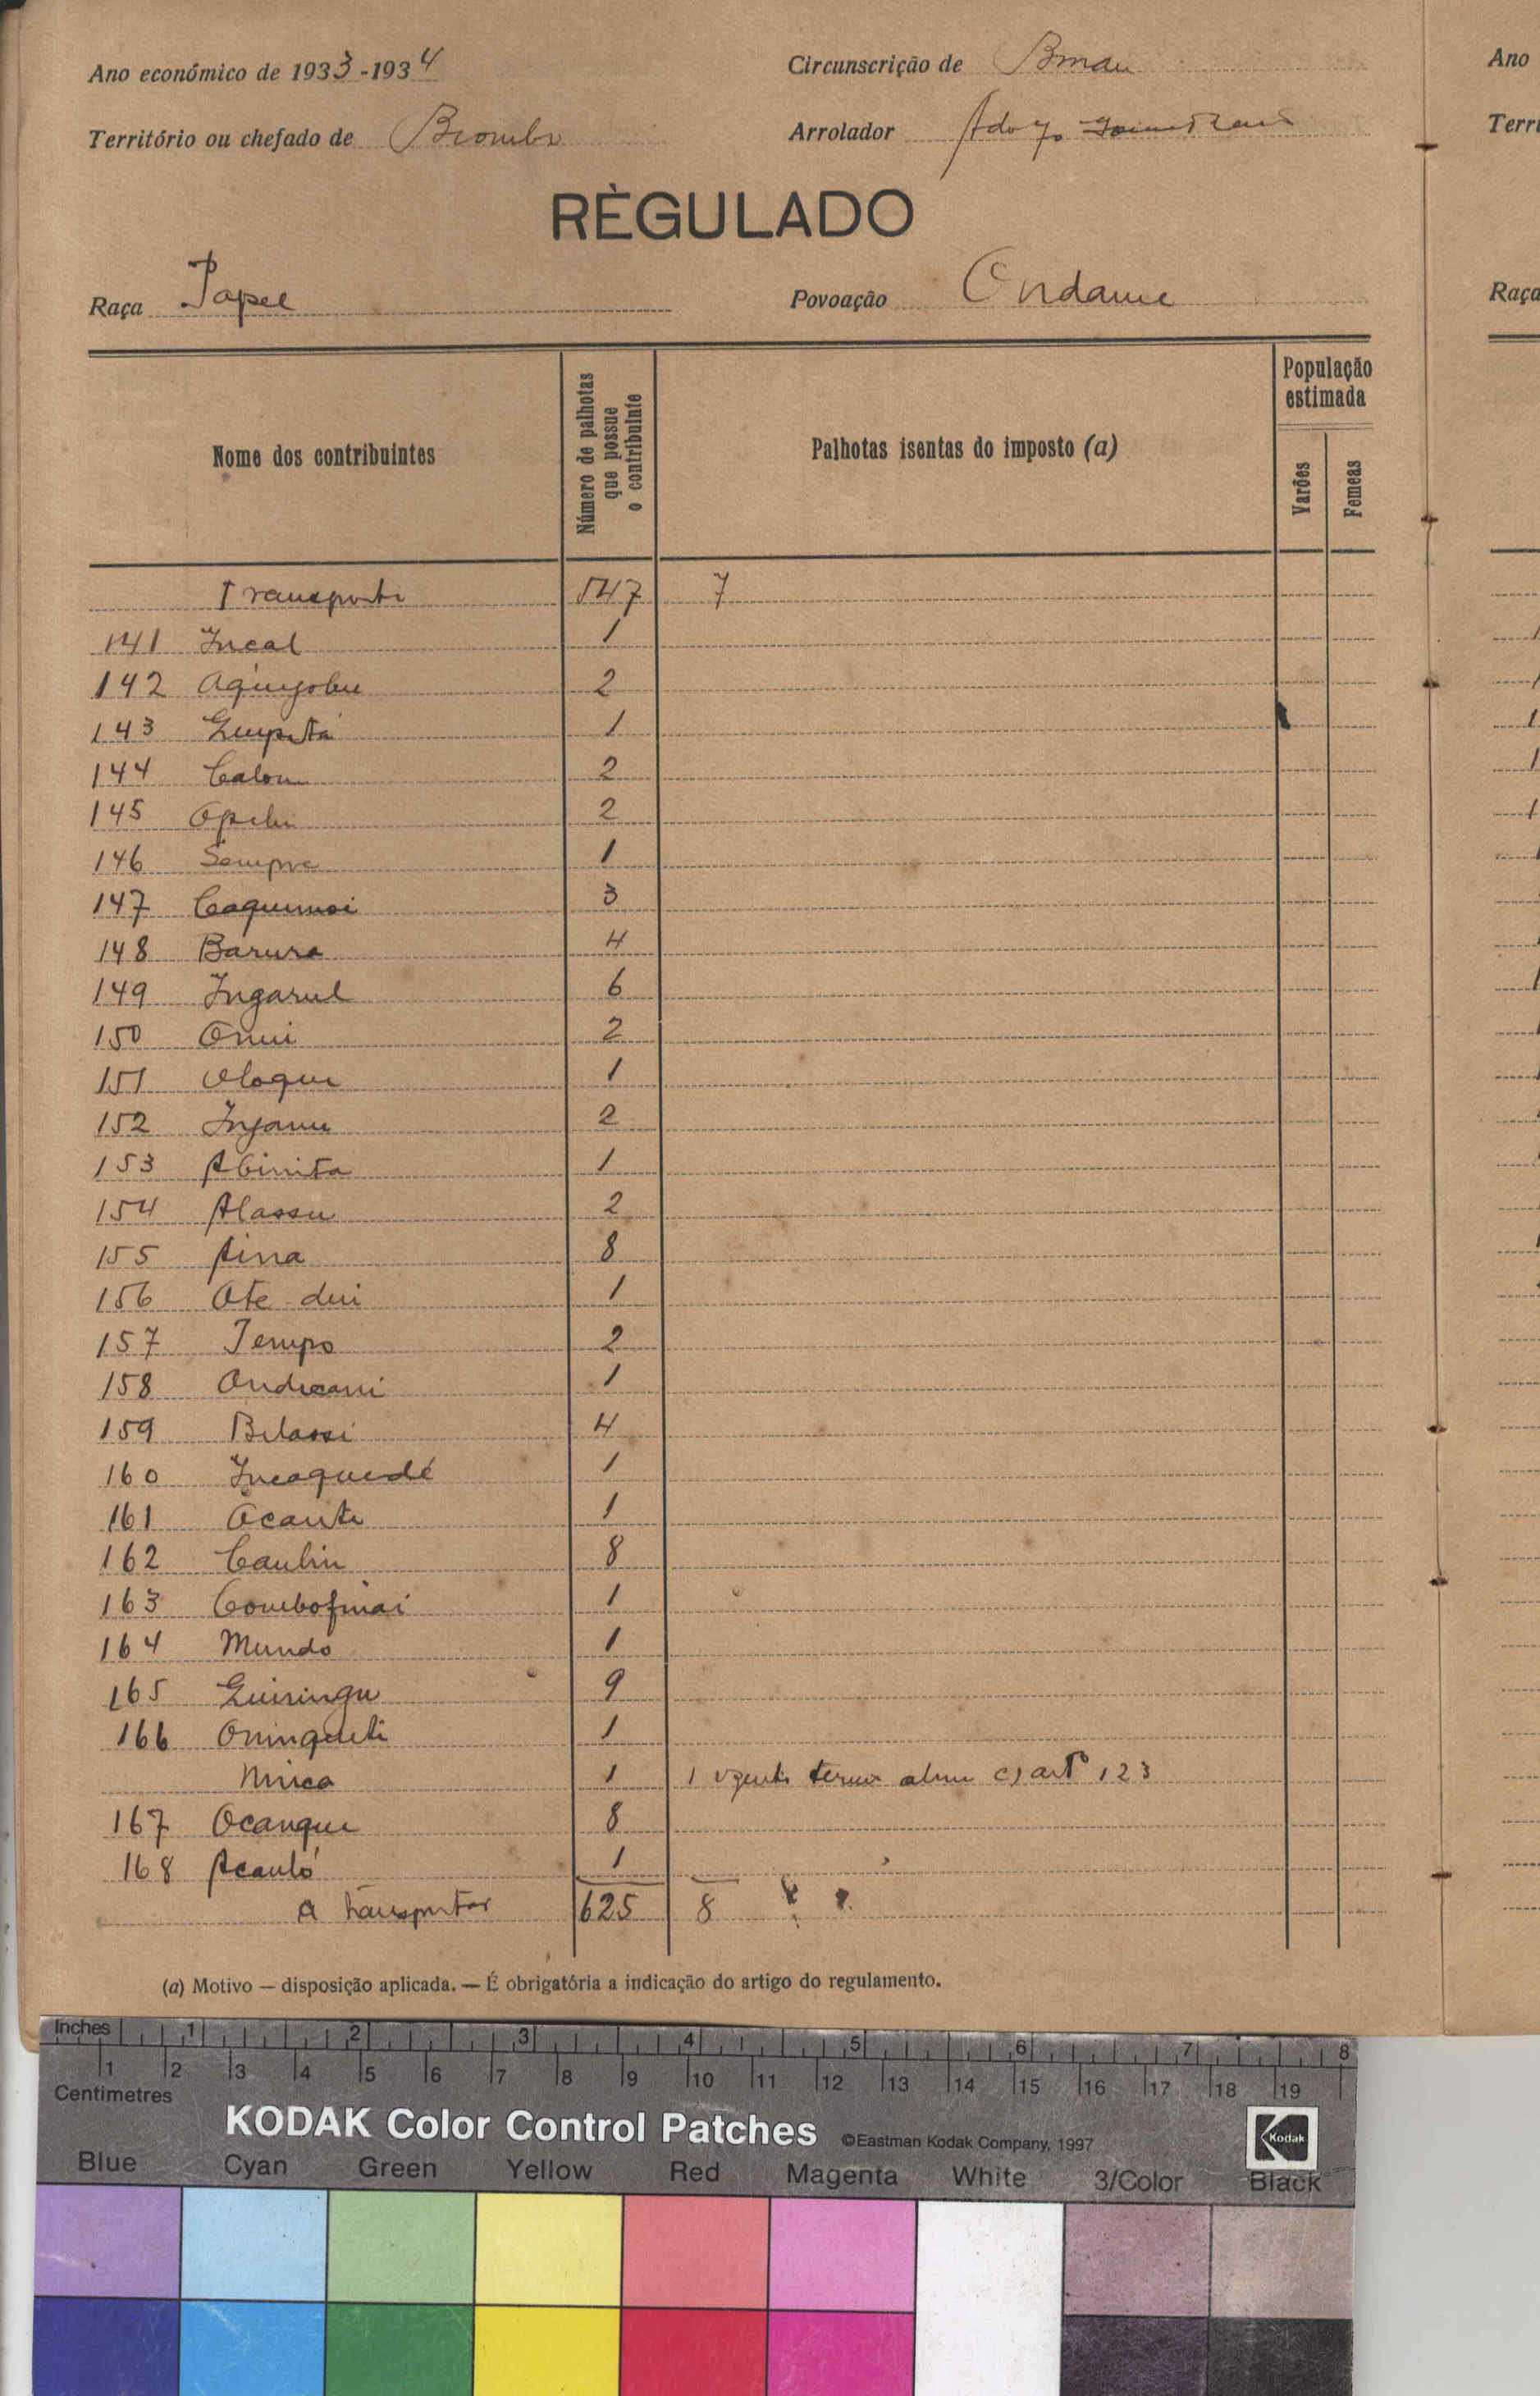 Ano económico de 1933-1934
Circunscrição de Bissau
Território ou chefado de Biombo
Arrolador Adolfo
RÈGULADO
Raça Papel
Povoação Ondame
Nome dos contribuintes
Número de palhotas que possue o contribuinte
Palhotas isentas do imposto (a)
População estimada
Varões
Femeas
Transporte 547 7
141 Incal 1
142 2
143 1
144 Calou 2
145 2
146 Sempre 1
147 3
148 Barura 4
149 Ingarul 6
150 Onui 2
151 Ologue 1
152 2
153 Abinita 1
154 Alassu 2
155 8
156 Ote-dui 1
157 Tempo 2
158 1
159 Bilassi 4
160 Incaguedé 1
161 Ocante 1
162 8
163 1
164 Mundo 1
165 9
166 1
1 1 c) artº 123
167 Ocangue 8
168 Acauló 1
A transportar 625 8
(a) Motivo — disposição aplicada. — É obrigatória a indicação do artigo do regulamento.
Ano
Terri
Raça
Inches 1 2 3 4 5 6 7 8
Centimetres 1 2 3 4 5 6 7 8 9 10 11 12 13 14 15 16 17 18 19
KODAK Color Control Patches ©Eastman Kodak Company, 1997 Kodak
Blue Cyan Green Yellow Red Magenta White 3/Color Black